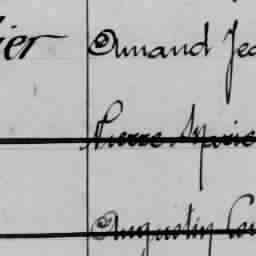 ier Armand Jea
Pierre Marie
Augustin Lou